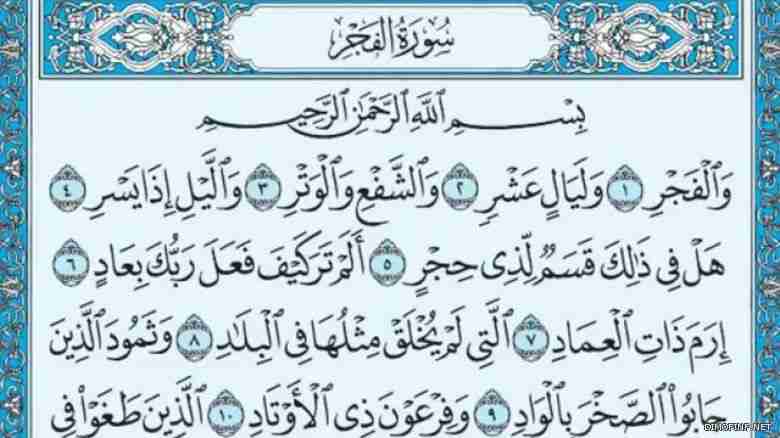 سُورَةُ الفَجْرِ
بِسْمِ ٱللَّهِ ٱلرَّحْمَٰنِ ٱلرَّحِيمِ
وَٱلْفَجْرِ ١ وَلَيَالٍ عَشْرٍ ٢ وَٱلشَّفْعِ وَٱلْوَتْرِ ٣ وَٱلَّيْلِ إِذَا يَسْرِ ٤
هَلْ فِى ذَٰلِكَ قَسَمٌ لِّذِى حِجْرٍ ٥ أَلَمْ تَرَ كَيْفَ فَعَلَ رَبُّكَ بِعَادٍ ٦
إِرَمَ ذَاتِ ٱلْعِمَادِ ٧ ٱلَّتِى لَمْ يُخْلَقْ مِثْلُهَا فِى ٱلْبِلَٰدِ ٨ وَثَمُودَ ٱلَّذِينَ
جَابُوا۟ ٱلصَّخْرَ بِٱلْوَادِ ٩ وَفِرْعَوْنَ ذِى ٱلْأَوْتَادِ ١٠ ٱلَّذِينَ طَغَوْا۟ فِى